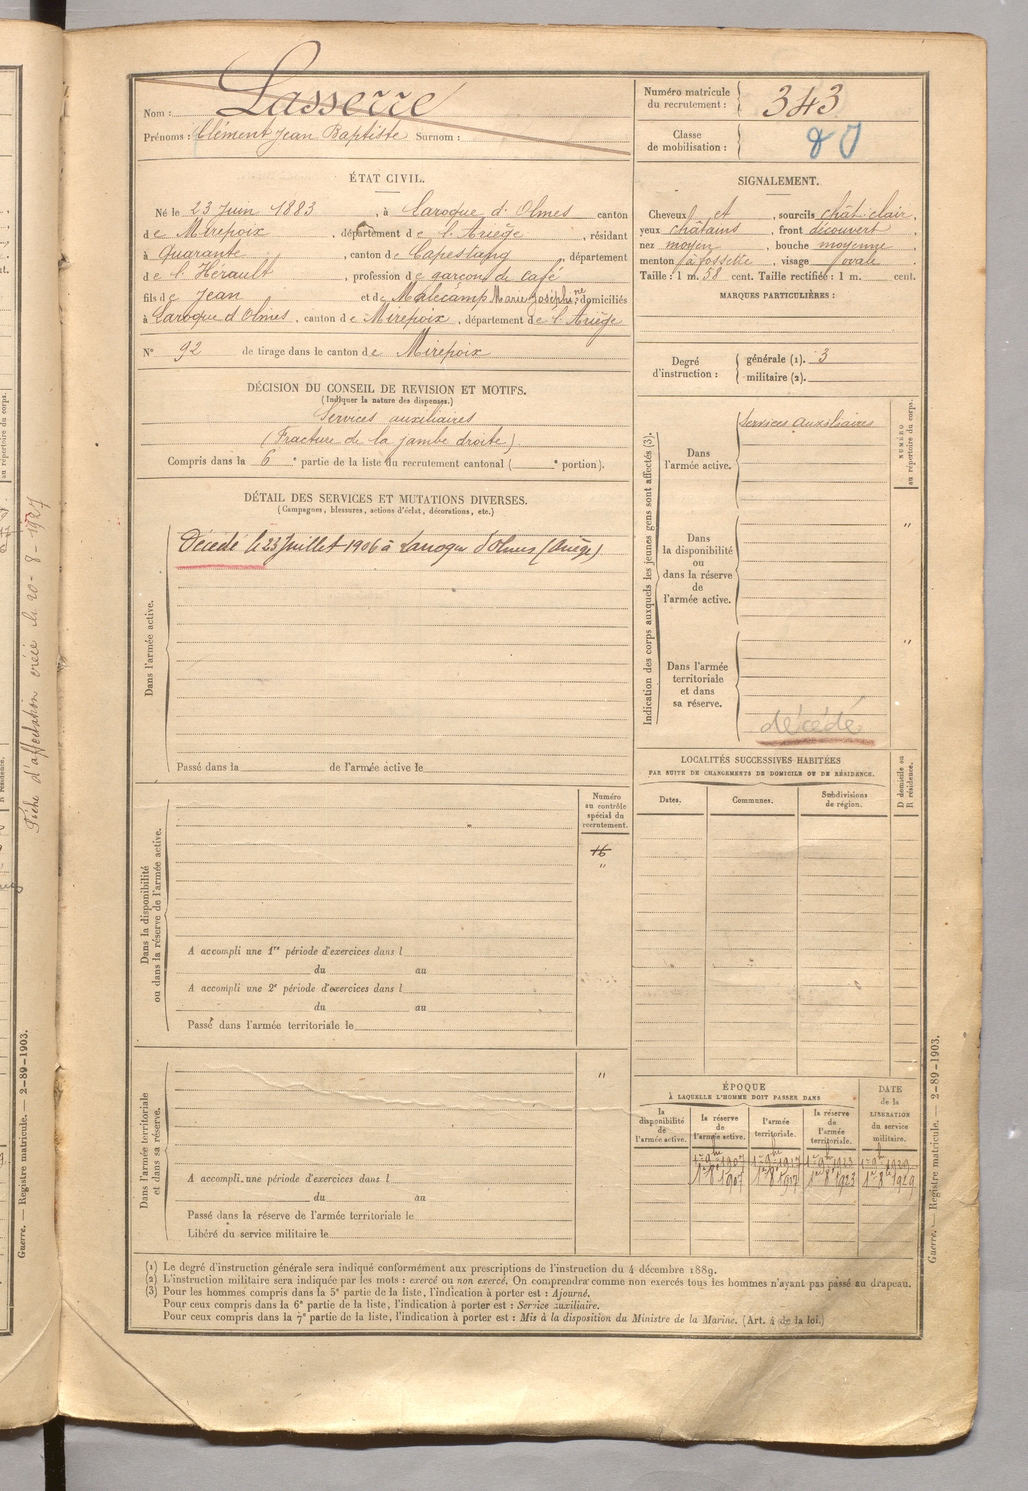 Nom : Lasserre
Prénoms : Clément Jean Baptiste Surnom :
Numéro matricule du recrutement : 343
Classe de mobilisation :
ÉTAT CIVIL.
Né le 23 Juin 1883, à Laroque d'Olmes canton
de Mirepoix, département de l'Ariège, résidant
à Quarante, canton de Capestang, département
de l'Hérault, profession de garçon de café
fils de Jean et de Malecamp Marie Joséphine domiciliés
à Laroque d'Olmes, canton de Mirepoix, département de l'Ariège
N° 92 de tirage dans le canton de Mirepoix
SIGNALEMENT.
Cheveux et, sourcils chât. clair,
yeux châtains, front découvert
nez moyen, bouche moyenne
menton à fossette, visage ovale
Taille : 1 m. 58 cent. Taille rectifiée : 1 m. cent.
MARQUES PARTICULIÈRES :
Degré d'instruction :
générale (1). 3
militaire (2).
DÉCISION DU CONSEIL DE REVISION ET MOTIFS.
(Indiquer la nature des dispenses.)
Services auxiliaires
(Fracture de la jambe droite)
Compris dans la 6e partie de la liste du recrutement cantonal ( e portion).
DÉTAIL DES SERVICES ET MUTATIONS DIVERSES.
(Campagnes, blessures, actions d'éclat, décorations, etc.)
Dans l'armée active.
Décédé le 23 Juillet 1906 à Laroque d'Olmes (Ariège)
Passé dans la de l'armée active le
Indication des corps auxquels les jeunes gens sont affectés (3).
NUMÉRO au répertoire du corps.
Dans l'armée active.
Services Auxiliaires
Dans la disponibilité ou dans la réserve de l'armée active.
"
Dans l'armée territoriale et dans sa réserve.
"
décédé
Dans la disponibilité ou dans la réserve de l'armée active.
Numéro au contrôle spécial du recrutement.
16
"
A accompli une 1re période d'exercices dans l
du au
A accompli une 2e période d'exercices dans l
du au
Passé dans l'armée territoriale le
LOCALITÉS SUCCESSIVES HABITÉES
PAR SUITE DE CHANGEMENTS DE DOMICILE OU DE RÉSIDENCE.
Dates.
Communes.
Subdivisions de région.
D domicile ou R résidence.
Dans l'armée territoriale et dans sa réserve.
"
A accompli une période d'exercices dans l
du au
Passé dans la réserve de l'armée territoriale le
Libéré du service militaire le
ÉPOQUE
À LAQUELLE L'HOMME DOIT PASSER DANS
la disponibilité de l'armée active.
la réserve de l'armée active.
l'armée territoriale.
la réserve de l'armée territoriale.
DATE de la LIBÉRATION du service militaire.
1er 9bre 1907 1er 9bre 1917 1er 9bre 1923 1er 9bre 1929
1er 8bre 1907 1er 8bre 1917 1er 8bre 1923 1er 8bre 1929
(1) Le degré d'instruction générale sera indiqué conformément aux prescriptions de l'instruction du 4 décembre 1889.
(2) L'instruction militaire sera indiquée par les mots : exercé ou non exercé. On comprendra comme non exercés tous les hommes n'ayant pas passé au drapeau.
(3) Pour les hommes compris dans la 5e partie de la liste, l'indication à porter est : Ajourné.
Pour ceux compris dans la 6e partie de la liste, l'indication à porter est : Service auxiliaire.
Pour ceux compris dans la 7e partie de la liste, l'indication à porter est : Mis à la disposition du Ministre de la Marine. (Art. 4 de la loi.)
Guerre. — Registre matricule. — 2-89-1903.
Fiche d'affectation créée le 20-8-1927
Guerre. — Registre matricule. — 2-89-1903.